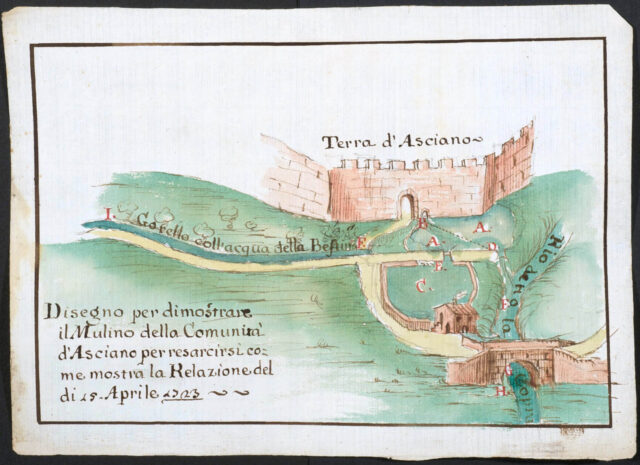 Terra d'Asciano
I.
Gorello coll'acqua della Bestina
E
B
A.
A.
D
F.
C.
Rio detto la
H
Disegno per dimostrare
il Mulino della Comunità
d'Asciano per resarcirsi co-
me mostra la Relazione del
di 15. Aprile 1723